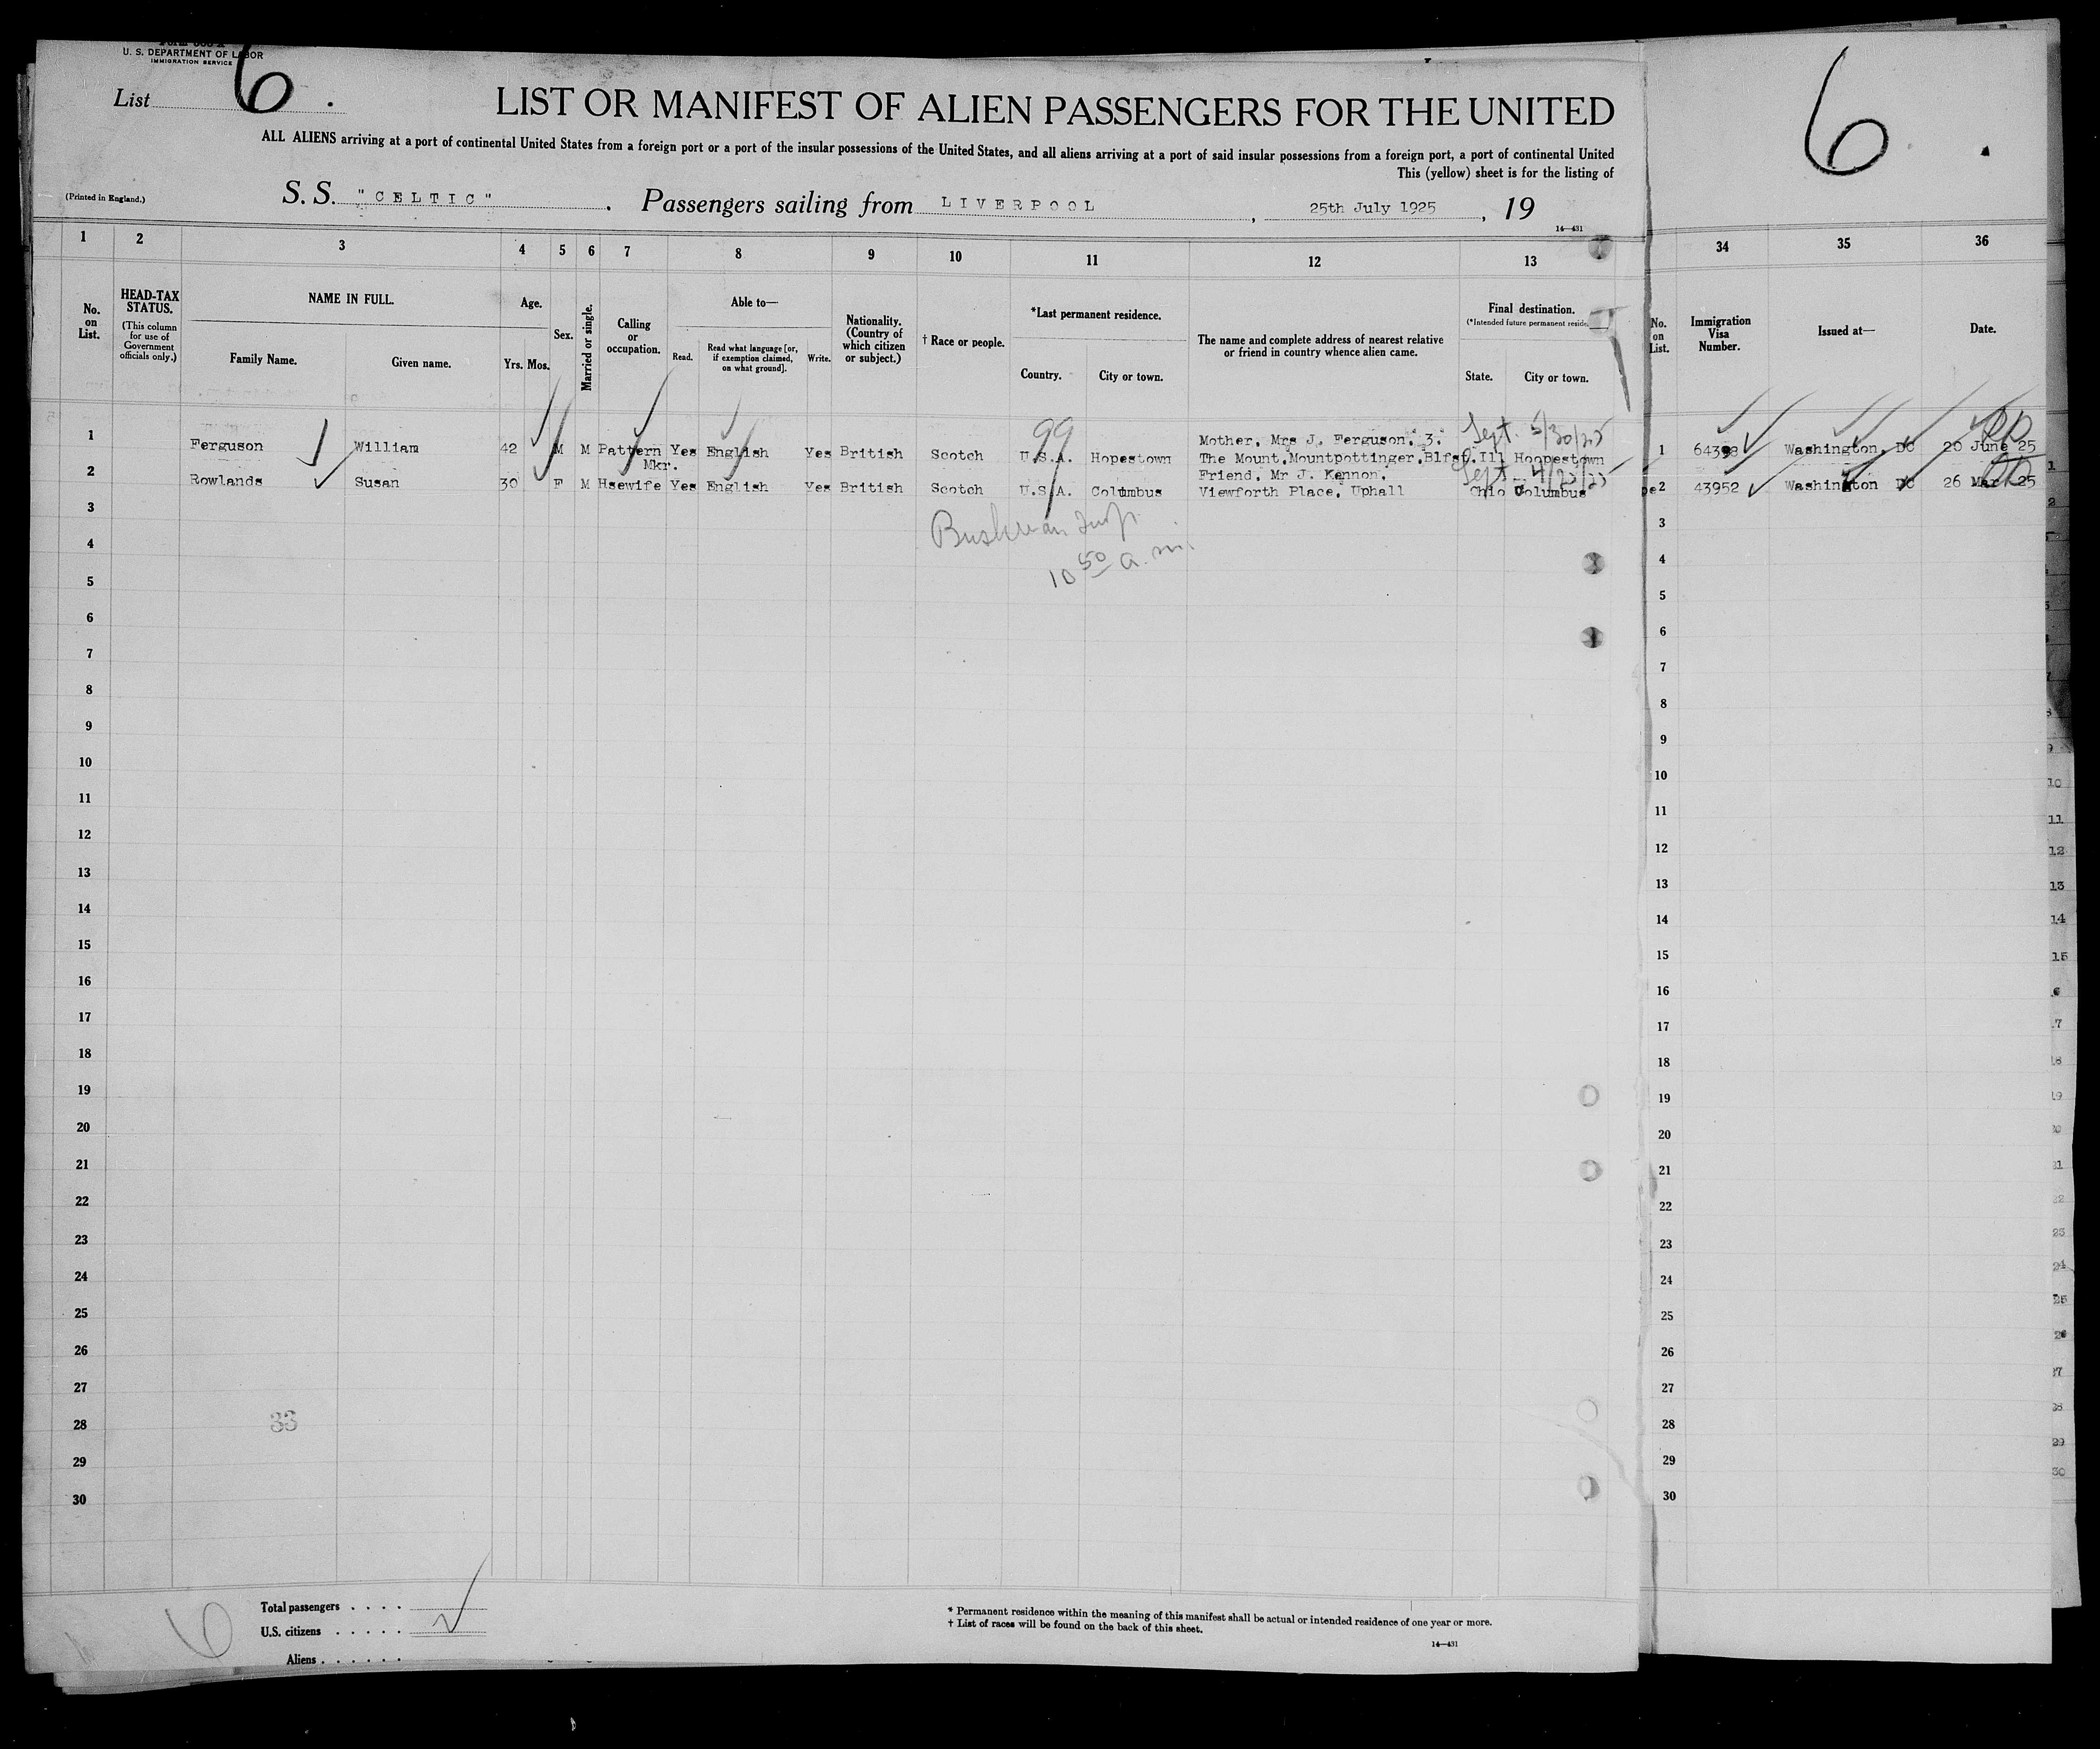 U. S. DEPARTMENT OF LABOR
IMMIGRATION SERVICE
List 6 .
LIST OR MANIFEST OF ALIEN PASSENGERS FOR THE UNITED
ALL ALIENS arriving at a port of continental United States from a foreign port or a port of the insular possessions of the United States, and all aliens arriving at a port of said insular possessions from a foreign port, a port of continental United
This (yellow) sheet is for the listing of
(Printed in England.)
S. S. "CELTIC" . Passengers sailing from LIVERPOOL , 25th July 1925 , 19
14—431
6
1 2 3 4 5 6 7 8 9 10 11 12 13
34 35 36
No. on List.
HEAD-TAX STATUS.
(This column for use of Government officials only.)
NAME IN FULL.
Family Name. Given name.
Age.
Yrs. Mos.
Sex.
Married or single.
Calling or occupation.
Able to—
Read. Read what language [or, if exemption claimed, on what ground]. Write.
Nationality. (Country of which citizen or subject.)
† Race or people.
*Last permanent residence.
Country. City or town.
The name and complete address of nearest relative or friend in country whence alien came.
Final destination.
(*Intended future permanent
State. City or town.
No. on List.
Immigration Visa Number.
Issued at—
Date.
99
Sept. 5/30/25
1 Ferguson William 42 M M Pattern Mkr. Yes English Yes British Scotch U.S.A. Hopestown Mother, Mrs J. Ferguson, 3.
The Mount,Mountpottinger,Blfst. Ill Hoopestown
1 Washington, DC 20 June 25
Sept 4/23/25
2 Rowlands Susan 30 F M Hsewife Yes English Yes British Scotch U.S.A. Columbus Friend, Mr J. Kennon,
Viewforth Place, Uphall Ohio Columbus
2 43952 Washington DC 26 Mar 25
Bushman Insp
10 50 a. m.
3
4
5
6
7
8
9
10
11
12
13
14
15
16
17
18
19
20
21
22
23
24
25
26
27
28
29
30
33
3
4
5
6
7
8
9
10
11
12
13
14
15
16
17
18
19
20
21
22
23
24
25
26
27
28
29
30
6
Total passengers . . . .
U.S. citizens . . . . .
Aliens . . . . . .
* Permanent residence within the meaning of this manifest shall be actual or intended residence of one year or more.
† List of races will be found on the back of this sheet.
14—431